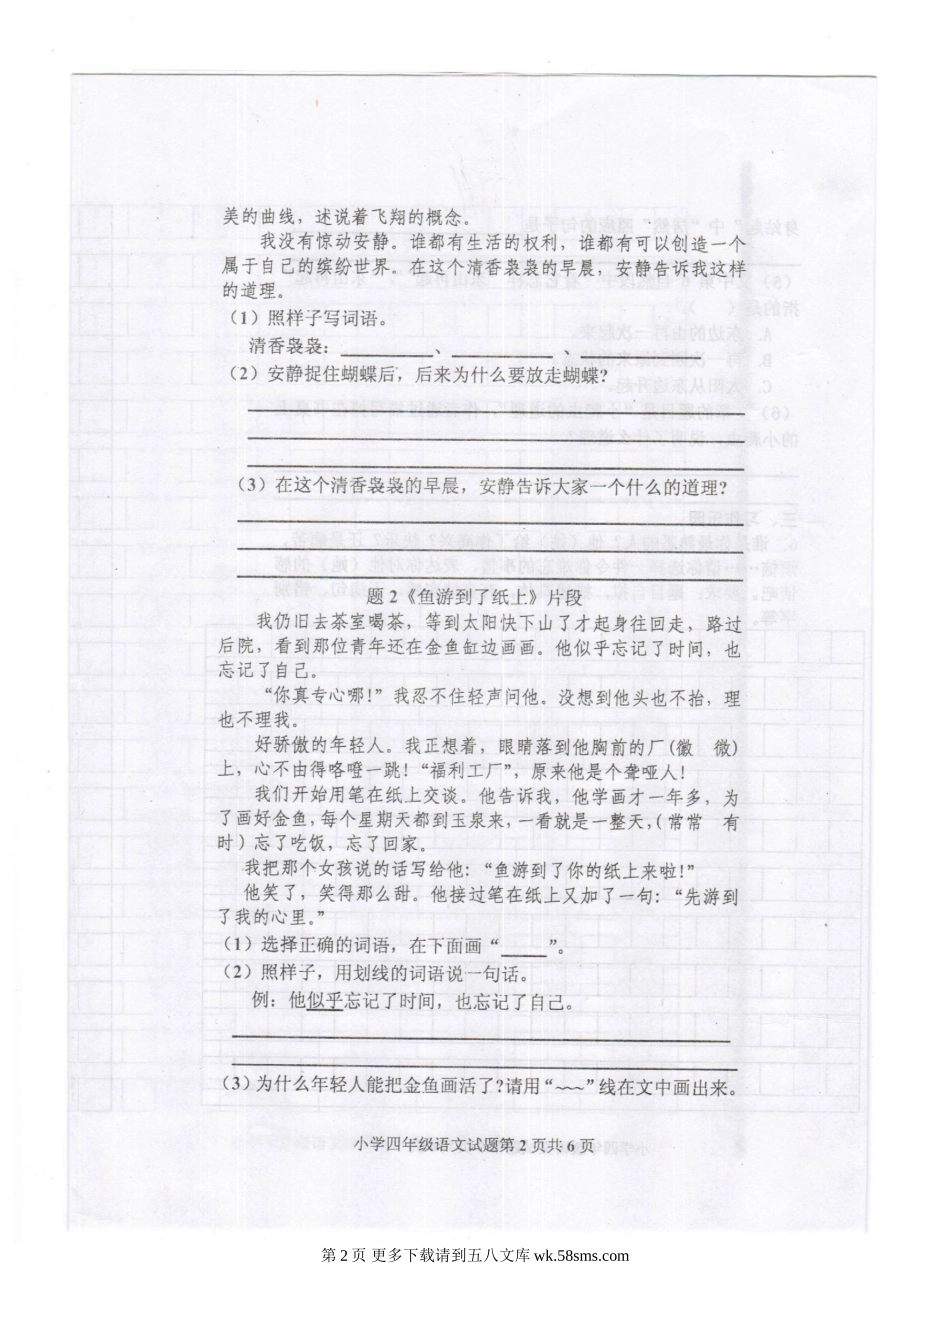 美的曲线，述说着飞翔的概念。
我没有惊动安静。谁都有生活的权利，谁都有可以创造一个
属于自己的缤纷世界。在这个清香袅袅的早晨，安静告诉我这样
的道理。
（1）照样子写词语。
清香袅袅：________、________、________
（2）安静捉住蝴蝶后，后来为什么要放走蝴蝶？
（3）在这个清香袅袅的早晨，安静告诉大家一个什么的道理？
题 2《鱼游到了纸上》片段
我仍旧去茶室喝茶，等到太阳快下山了才起身往回走，路过
后院，看到那位青年还在金鱼缸边画画。他似乎忘记了时间，也
忘记了自己。
“你真专心哪！”我忍不住轻声问他。没想到他头也不抬，理
也不理我。
好骄傲的年轻人。我正想着，眼睛落到他胸前的厂(徽　微)
上，心不由得咯噔一跳！“福利工厂”，原来他是个聋哑人！
我们开始用笔在纸上交谈。他告诉我，他学画才一年多，为
了画好金鱼，每个星期天都到玉泉来，一看就是一整天，（常常　有
时）忘了吃饭，忘了回家。
我把那个女孩说的话写给他：“鱼游到了你的纸上来啦！”
他笑了，笑得那么甜。他接过笔在纸上又加了一句：“先游到
了我的心里。”
（1）选择正确的词语，在下面画“____”。
（2）照样子，用划线的词语说一句话。
例：他似乎忘记了时间，也忘记了自己。
（3）为什么年轻人能把金鱼画活了？请用“~~~”线在文中画出来。
小学四年级语文试题第 2 页共 6 页
第 2 页 更多下载请到五八文库 wk.58sms.com